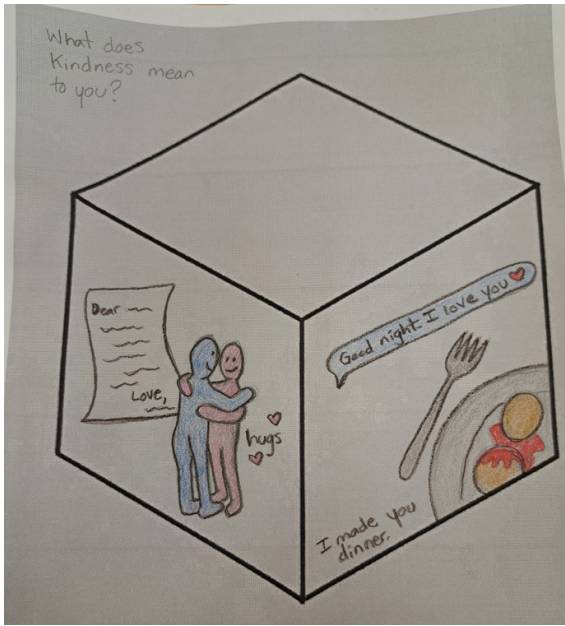 What does
Kindness mean
to you?
Dear
Love,
hugs
Good night I love you
I made you
dinner.